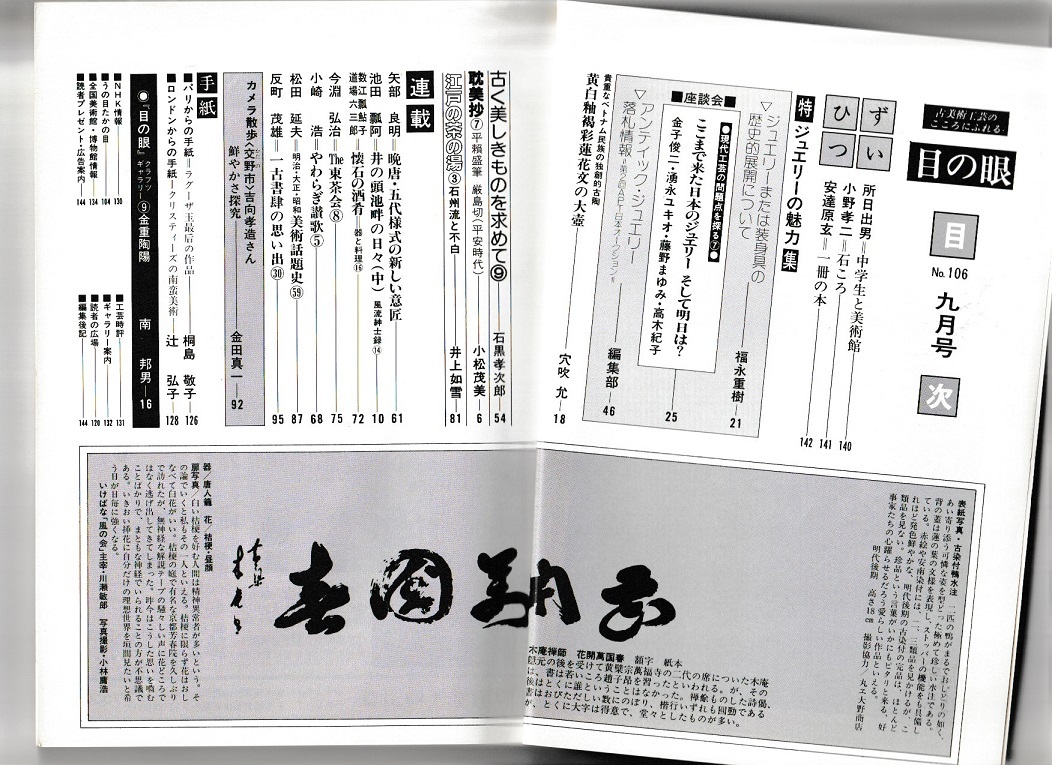 古美術工芸の
こころにふれる
目の眼
目
No.106
九月号
次
ずいひつ
所日出男=中学生と美術館
140
小野孝二=石ころ
141
安達原玄=一冊の本
142
特集
ジュエリーの魅力
▽ジュエリーまたは装身具の
歴史的展開について
福永重樹
21
■座談会■
●現代工芸の問題点を探る⑦●
ここまで来た日本のジュエリー そして明日は?
金子俊二・湧永ユキオ・藤野まゆみ・高木紀子
25
▽アンティイック・ジュエリー
落札情報
編集部
46
貴重なベトナム民族の独創的古陶
黄白釉褐彩蓮花文の大壷
穴吹 允
18
古く美しきものを求めて⑨
石黒孝次郎
54
耽美抄⑦ 平頼盛筆 厳島切(平安時代)
小松茂美
6
江戸の茶の湯③ 石州流と不白
井上如雪
81
連載
矢部 良明=晩唐・五代様式の新しい意匠
61
池田 瓢阿=井の頭池畔の日々(中) 風流紳士録⑭
10
数江瓢鮎子
道場六三郎=懐石の酒肴=器と料理⑯
72
今淵 弘治=The東茶会⑧
75
小崎 浩=やわらぎ讃歌⑤
68
松田 延夫=明治・大正・昭和美術話題史㊾
87
反町 茂雄=一古書肆の思い出㉚
95
カメラ散歩〈交野市〉吉向孝造さん
鮮やかさ探究
金田真一
92
手紙
■パリからの手紙=ラグーザ玉最后の作品
桐島 敬子
126
■ロンドンからの手紙=クリスティーズの南蛮美術
辻 弘子
128
●『目の眼』クラフツギャラリー⑨金重陶陽
南 邦男
16
■NHK情報
130
■うの目たかの目
104
■全国美術館・博物館情報
134
■読者プレゼント・広告案内
144
■工芸時評
131
■ギャラリー案内
132
■読者の広場
120
■編集後記
144
表紙写真・古染付鴨水注 二匹の鴨がまるでおしどりの如く、
あい寄り添う可憐な姿を型どった極めて珍しい水注である。
背の蓋は蓮の葉の文様を表現し、ストッパーの機能をも具備し
ている。赤絵や安南染付には、二、三類品を見かけるが、こ
れほど発色鮮やかな、明代後期の古染付の完品は、ほとんど
類品を見ない。珍品という言葉がいかにもピタリと来る、好
事家たちの心躍らせるだろう愛らしい作品といえる。
明代後期 高さ18cm 撮影協力 丸エ大野商店
木庵禅師 花開萬国春 額字 紙本
隠元の後を受けて黄檗宗萬福寺の二代の席についた木庵
器/唐人籠 花/桔梗・昼顔
扉写真/白い桔梗を好む人間は精神異常者が多いという。そ
の論でいくと私もその一人といえる。桔梗に限らず花はおし
なべて白花がいい。桔梗の庭で有名な京都芳春院を久しぶり
で訪れたが、無神経な解説テープの騒々しい声に花どころで
はなく逃げ出してきてしまった。昨今はこうした思いを噛む
ことばかりで、まともな神経でいられることの方が不思議で
ある。いきおい挿花に自分だけの理想世界を垣間見たいと希
う日が日毎に強くなる。
いけばな「風の会」主宰・川瀬敏郎 写真撮影・小林庸浩